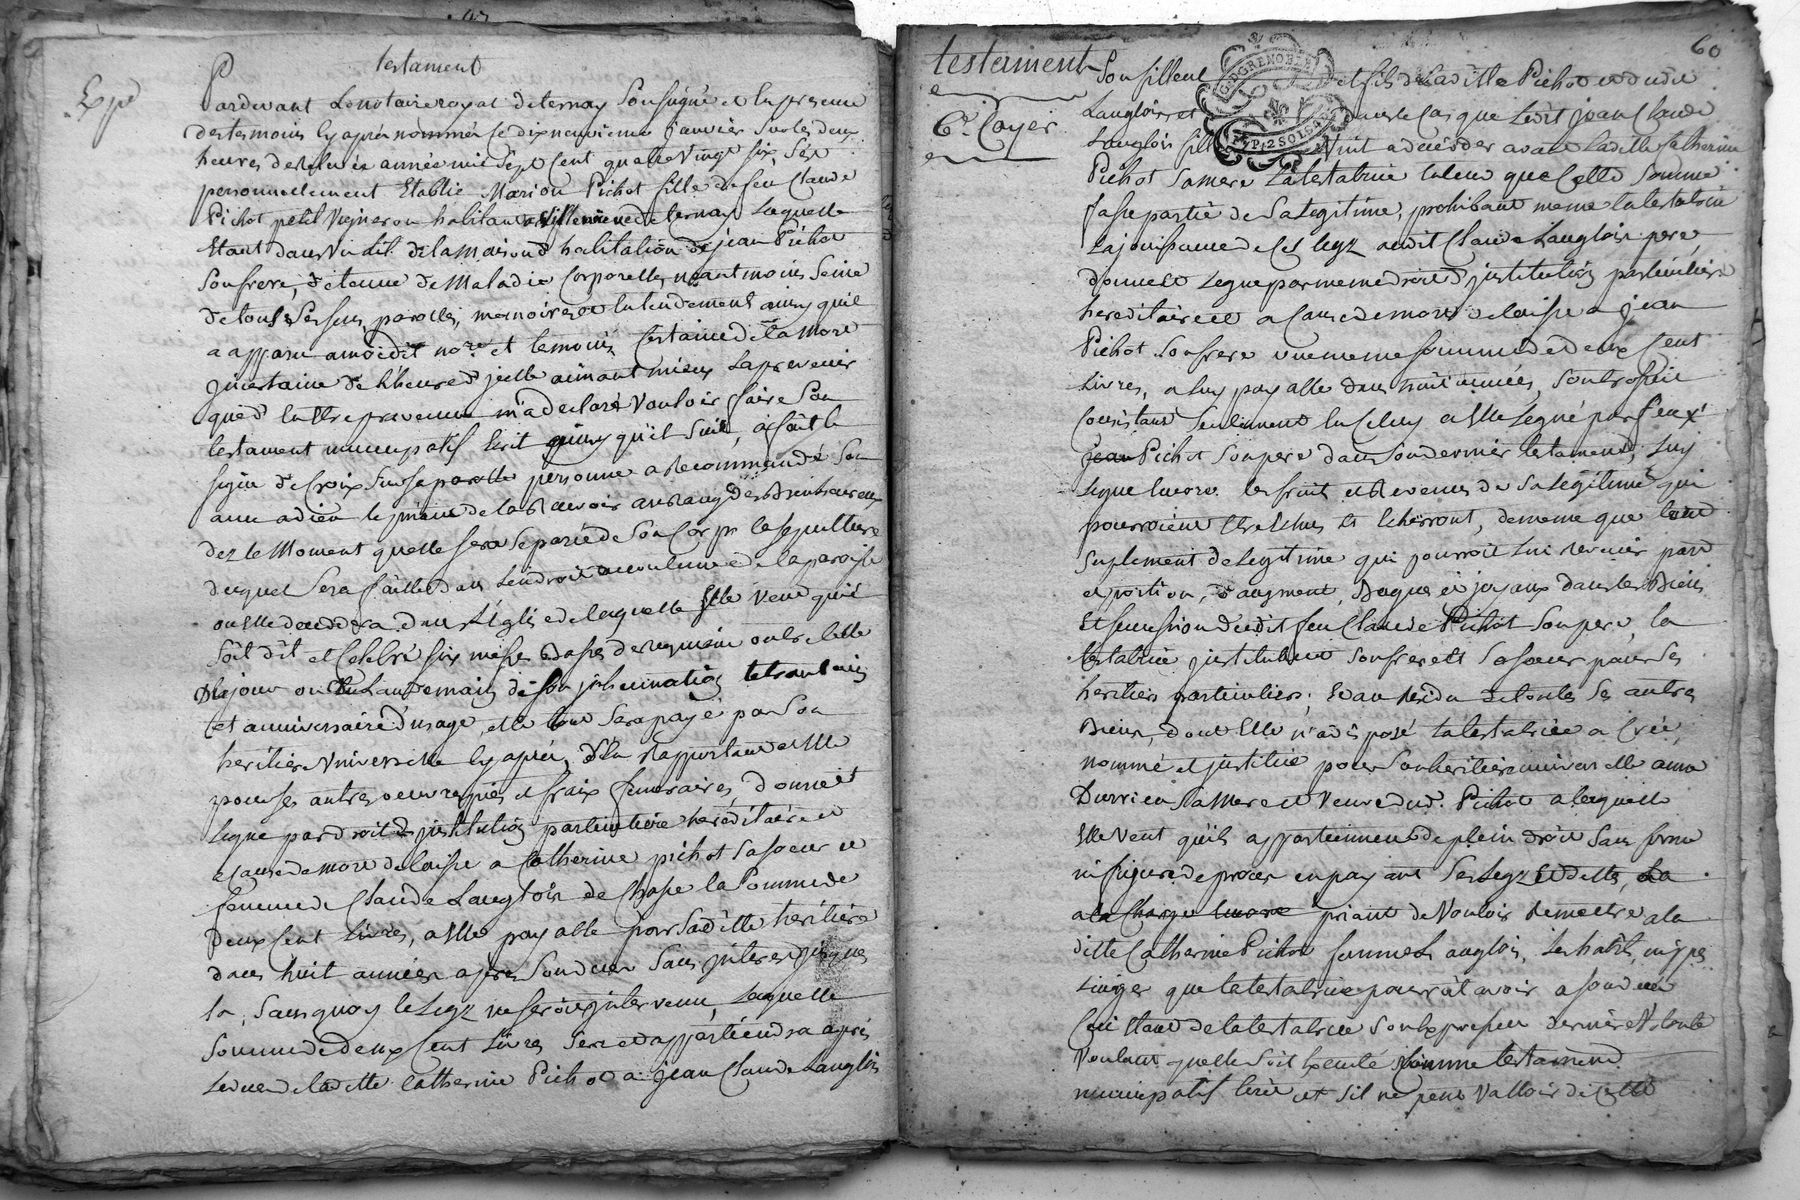 testament
Expé
Pardevant Le notaire royal de ternay Soussigné et En presence
des temoins Cy aprés nommés Ce dix neuvieme janvier Sur les deux
heures de relevée année mil Sept Cent quatre Vingt six, S'est
personnellement Etablie Marion Pichot fille de feu Claude
Pichot petit Vigneron habitant de ternay Laquelle
Etant dans Un lit de la maison d'habitation de jean Pichot
Son frere, detenue de Maladie Corporelle, neantmoins Seine
de tous Ses Sens, parolles, memoire et Entendement ainsy qu'il
a apparu a moidit no.re et temoins Certaine de la mort
jncertaine de L'heure d'jcelle aimant mieux La prevenir
que d'En Etre prevenue m'a declaré Vouloir faire Son
testament nuncupatif Ecrit ainsy qu'il Suit, a fait le
signe de Croix Sur Sa personne a Recommandé Son
ame a dieu le priant de la Recevoir au rang des Bienheureux
dez le Moment quelle sera Separée de Son Corps la sepulture
duquel Sera faitte dans Lendroit accoutumé de la paroisse
ou Elle decedera dans L'Eglise de laquelle Elle Veut qu'il
Soit dit et Celebré six messes basses de requiem outre Celle
Du jour ou Lendemain de Son jnhumation
et anniversaire d'usage, et le tout Sera payé par Son
heritiere Universelle Cy aprés, S'En Rapportant Elle
pour Ses autres oeuvres pies et fraix funeraires, donne et
Legue par droit d'jnstitution particuliere hereditaire et
a Cause de mort delaisse a Catherine pichot Sa Soeur et
femme de Claude Langlois de Chasse la Somme de
Deux Cent Livres, a Elle payable par Sa ditte heritiere
dans huit années apres Son decez Sans jnterest jusques
la, Sans quoy le Legz ne Seroit jntervenu, Laquelle
Somme de deux Cent Livres Sera et appartiendra aprés
Le decez de la ditte Catherine Pichot a jean Claude Langlois
60
testament
6e. Cayer
GD GRENOBLE
PP 2 SOLS
Son filleul et fils de La ditte Pichot et dudit
Langlois et dans le Cas que Ledit jean Claude
Langlois fill Vint a deceder avant laditte Catherine
Pichot Sa mere La testatrice Entend que Cette Somme
fasse partie de Sa Legitime, prohibant meme la testatrice
La jouissance de Ces legz audit Claude Langlois pere,
donne et Legue par meme droit d'jnstitution particuliere
hereditaire et a Cause de mort delaisse a jean
Pichot Son frere une meme somme de deux Cent
Livres, a luy payable dans huit années,
Consistant Seulement En Celuy a Elle Legué par feu
jean Pichot Son pere dans Son dernier testament, Luy
Legue Encore les fruits et Revenus de Sa Legitime qui
pourroient Etre Echus Et Echerront, de meme que tout
Suplement de Legitime qui pourroit Lui revenir part
et portion, d'augment, Bagues et joyaux dans les Biens
Et Succession dudit feu Claude Pichot Son pere, la
testatrice jnstituant Son frere Et Sa Soeur pour Ses
heritiers particuliers; Et au Residu de toutes Ses autres
Biens, dont Elle n'a disposé la testatrice a Créé,
nommé et jnstitué pour Son heritiere universelle anne
Durrieu Sa Mere et Veuve dud. Pichot a laquelle
Elle Veut qu'ils appartiennent de plein droit Sans forme
ni figure de procez en payant Ses Legz Et dettes, La
a la Charge Encore priant de Vouloir Remettre a la
ditte Catherine Pichot femme Langlois, Les habits, nippes
Linges que la testatrice pourroit avoir a Son decez
Ceci Etant de la testatrice Son Expresse derniere Volonté
Voulant quelle Soit Executé Comme testament
nuncupatif Ecrit et Sil ne peut Valloir de Cette